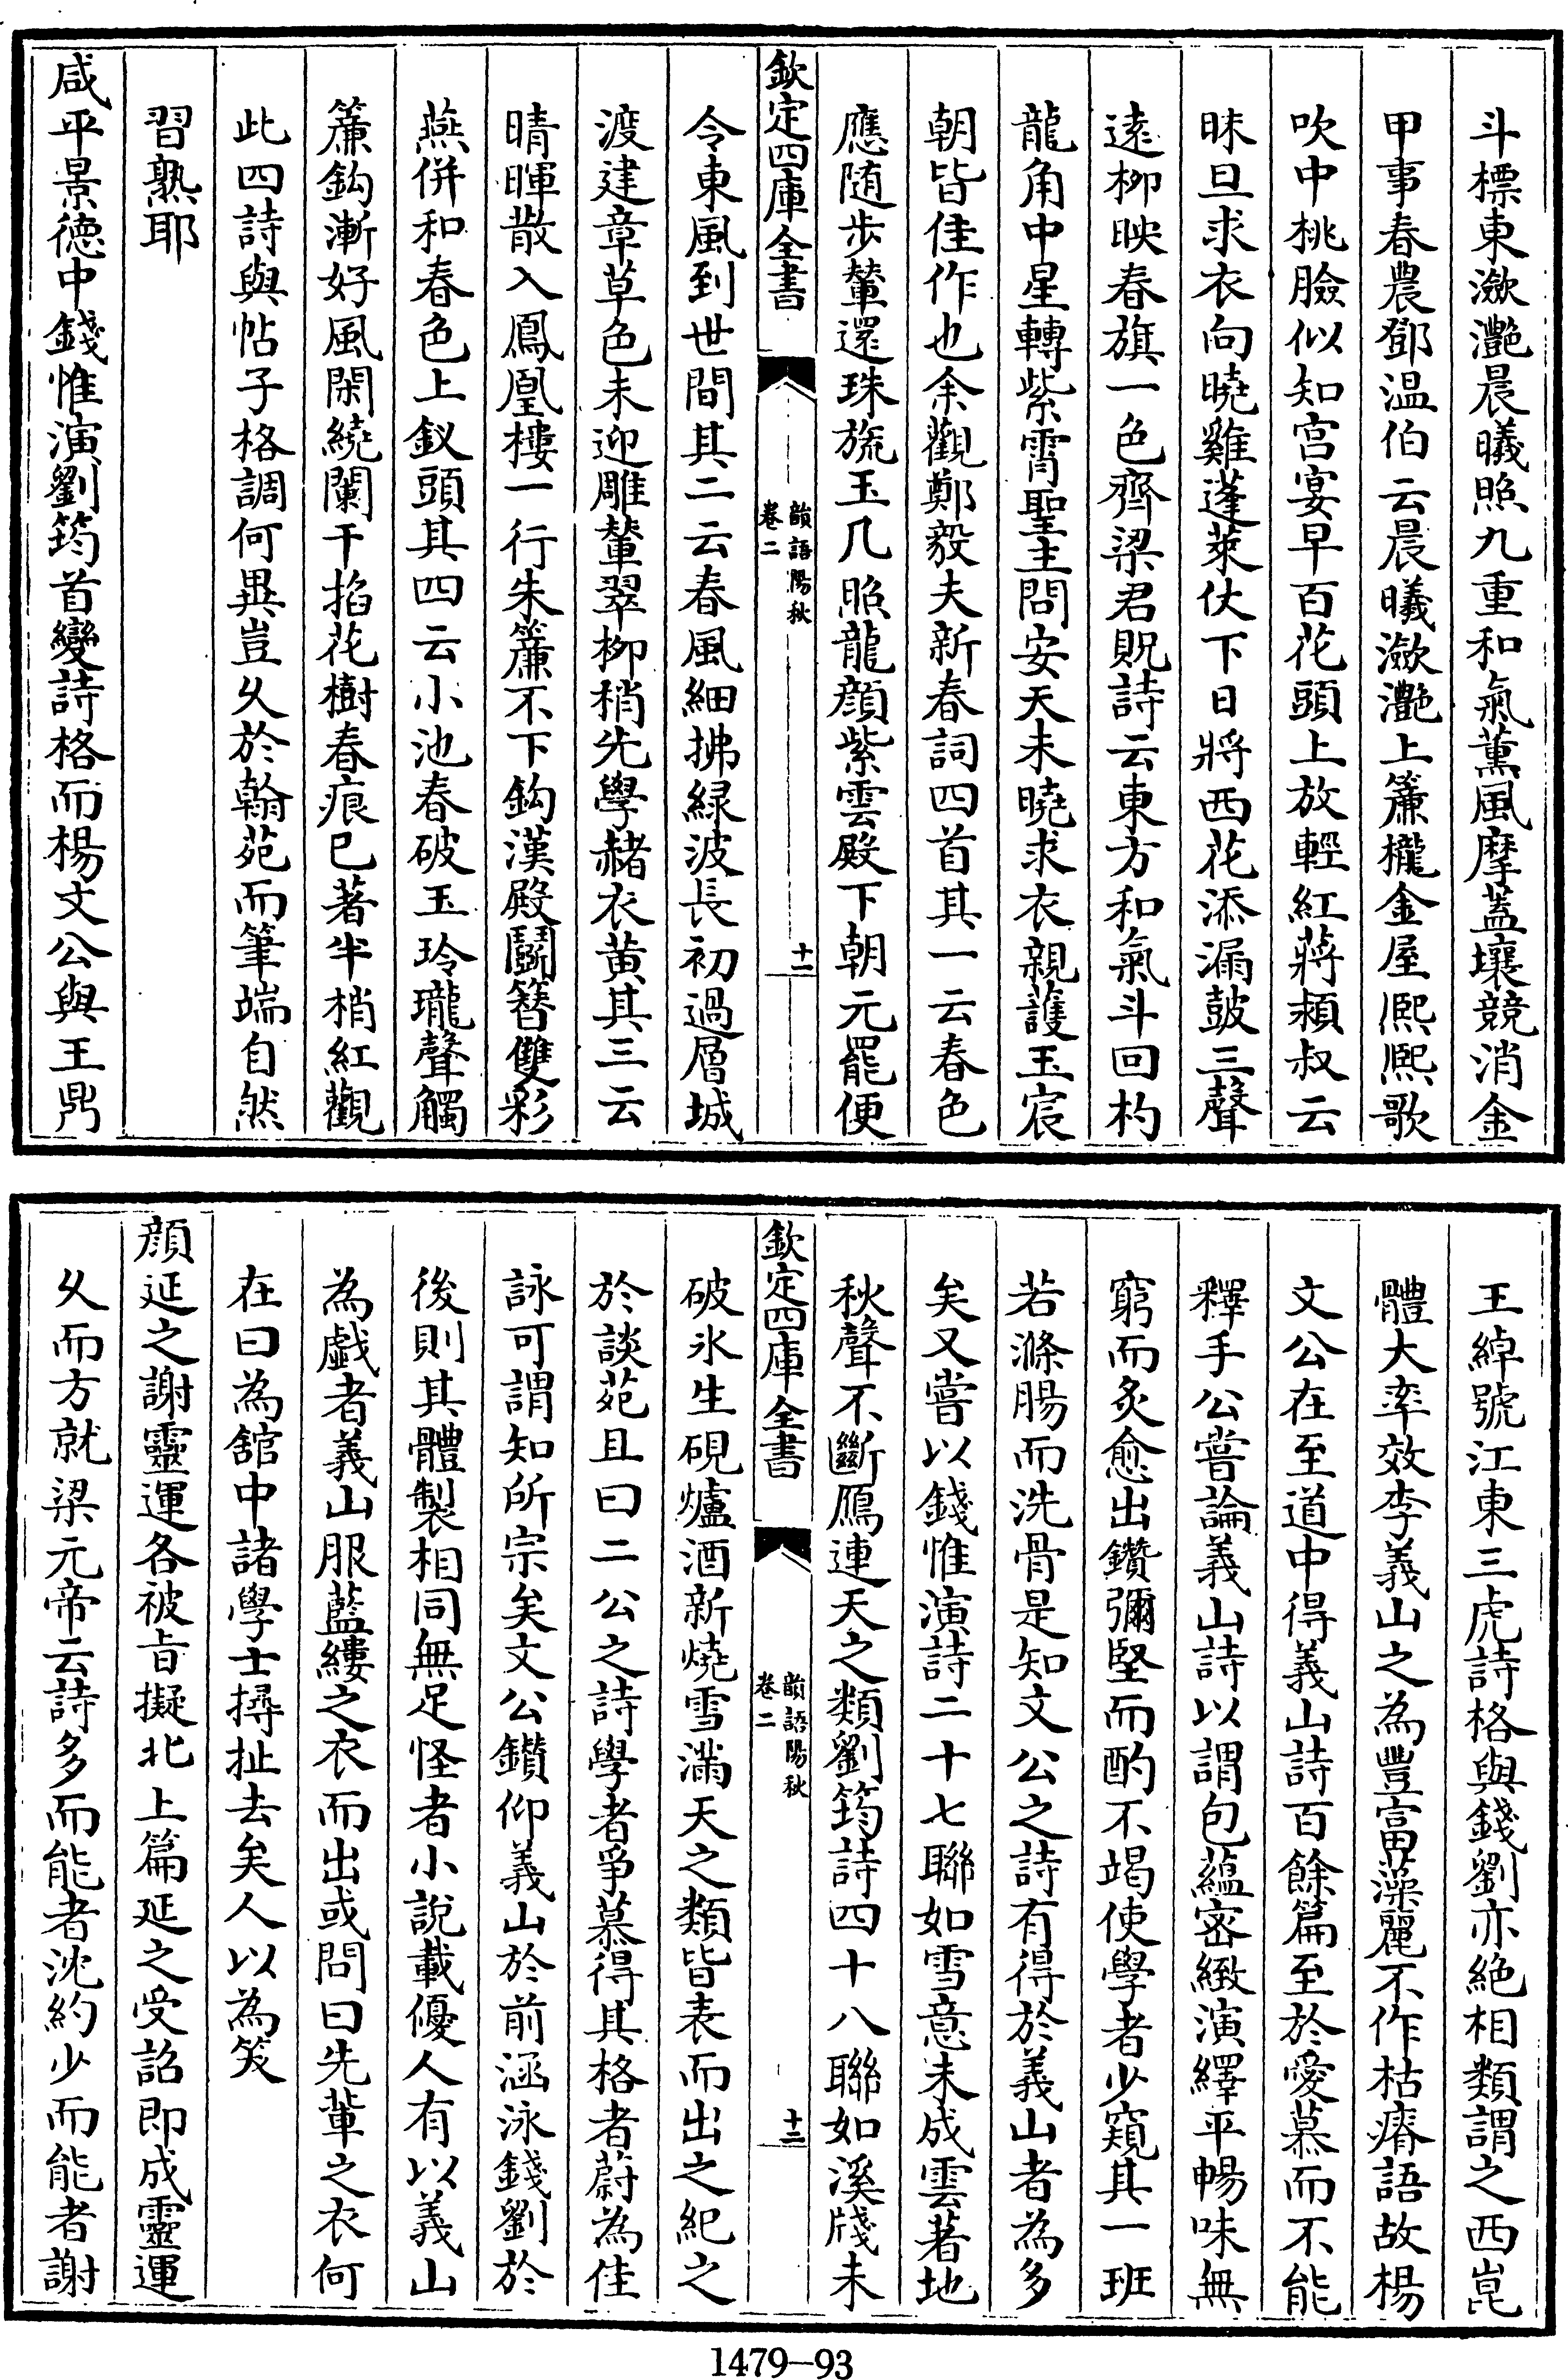 斗標東瀲灔晨曦照九重和氣薰風摩蓋壤競消金
甲事春農鄧温伯云晨曦瀲灔上簾櫳金屋熈熈歌
吹中桃臉似知宫宴早百花頭上放輕紅蔣潁叔云
昧旦求衣向曉雞蓬萊仗下日將西花添漏鼓三聲
逺柳映春旗一色齊梁君貺詩云東方和氣斗回杓
龍角中星轉紫霄聖主問安天未曉求衣親護玉宸
朝皆佳作也余觀鄭毅夫新春詞四首其一云春色
應隨步輦還珠旒玉几照龍顔紫雲殿下朝元罷便
欽定四庫全書
韻語陽秋
卷二
十二
令東風到世間其二云春風細拂緑波長初過層城
渡建章草色未迎雕輦翠柳稍先學赭衣黄其三云
晴暉散入鳳凰樓一行朱簾不下鈎漢殿鬭簪雙彩
燕併和春色上釵頭其四云小池春破玉玲瓏聲觸
簾鈎漸好風閑繞闌干掐花樹春痕已著半梢紅觀
此四詩與帖子格調何異豈乆於翰苑而筆端自然
習熟耶
咸平景德中錢惟演劉筠首變詩格而楊文公與王鼎
王綽號江東三虎詩格與錢劉亦絶相類謂之西崑
體大率效李義山之為豐富藻麗不作枯瘠語故楊
文公在至道中得義山詩百餘篇至於愛慕而不能
釋手公嘗論義山詩以謂包藴密緻演繹平暢味無
窮而炙愈出鑽彌堅而酌不竭使學者少窺其一班
若滌腸而洗骨是知文公之詩有得於義山者為多
矣又嘗以錢惟演詩二十七聯如雪意未成雲著地
秋聲不斷鴈連天之類劉筠詩四十八聯如溪牋未
欽定四庫全書
韻語陽秋
卷二
十二
破氷生硯爐酒新燒雪滿天之類皆表而出之紀之
於談苑且曰二公之詩學者爭慕得其格者蔚為佳
詠可謂知所宗矣文公鑽仰義山於前涵泳錢劉於
後則其體製相同無足怪者小說載優人有以義山
為戯者義山服藍縷之衣而出或問曰先輩之衣何
在曰為舘中諸學士撏扯去矣人以為笑
顔延之謝靈運各被㫖擬北上篇延之受詔即成靈運
乆而方就梁元帝云詩多而能者沈約少而能者謝
1479—93